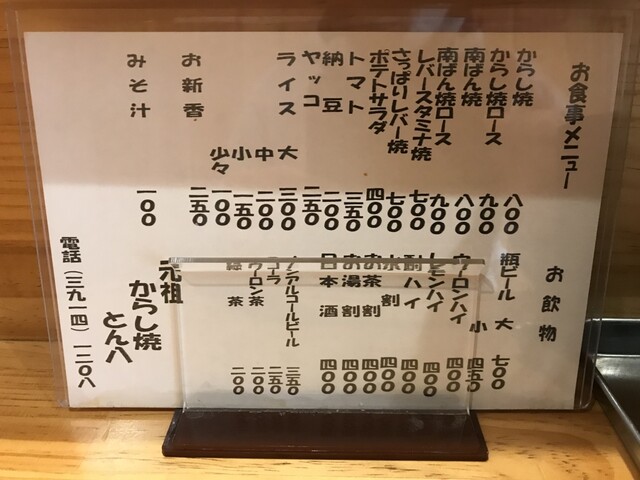 お食事メニュー
からし焼 八〇〇
からし焼ロース 九〇〇
南ばん焼 八〇〇
南ばん焼ロース 九〇〇
レバースタミナ焼 七〇〇
さっぱりレバー焼 七〇〇
ポテトサラダ 四〇〇
トマト 三五〇
納豆 二〇〇
ヤッコ 二五〇
ライス 大 三〇〇
中 二〇〇
小 一五〇
少々 一〇〇
お新香 二五〇
みそ汁 一〇〇
お飲物
瓶ビール 大 七〇〇
小 四五〇
ウーロンハイ 四〇〇
レモンハイ 四〇〇
酎ハイ 四〇〇
水割 四〇〇
お茶割 四〇〇
お湯割 四〇〇
日本酒 四〇〇
ノンアルコールビール 三五〇
コーラ 二五〇
ウーロン茶 二〇〇
緑茶 二〇〇
元祖
からし焼
とん八
電話(三九一四)一二〇八